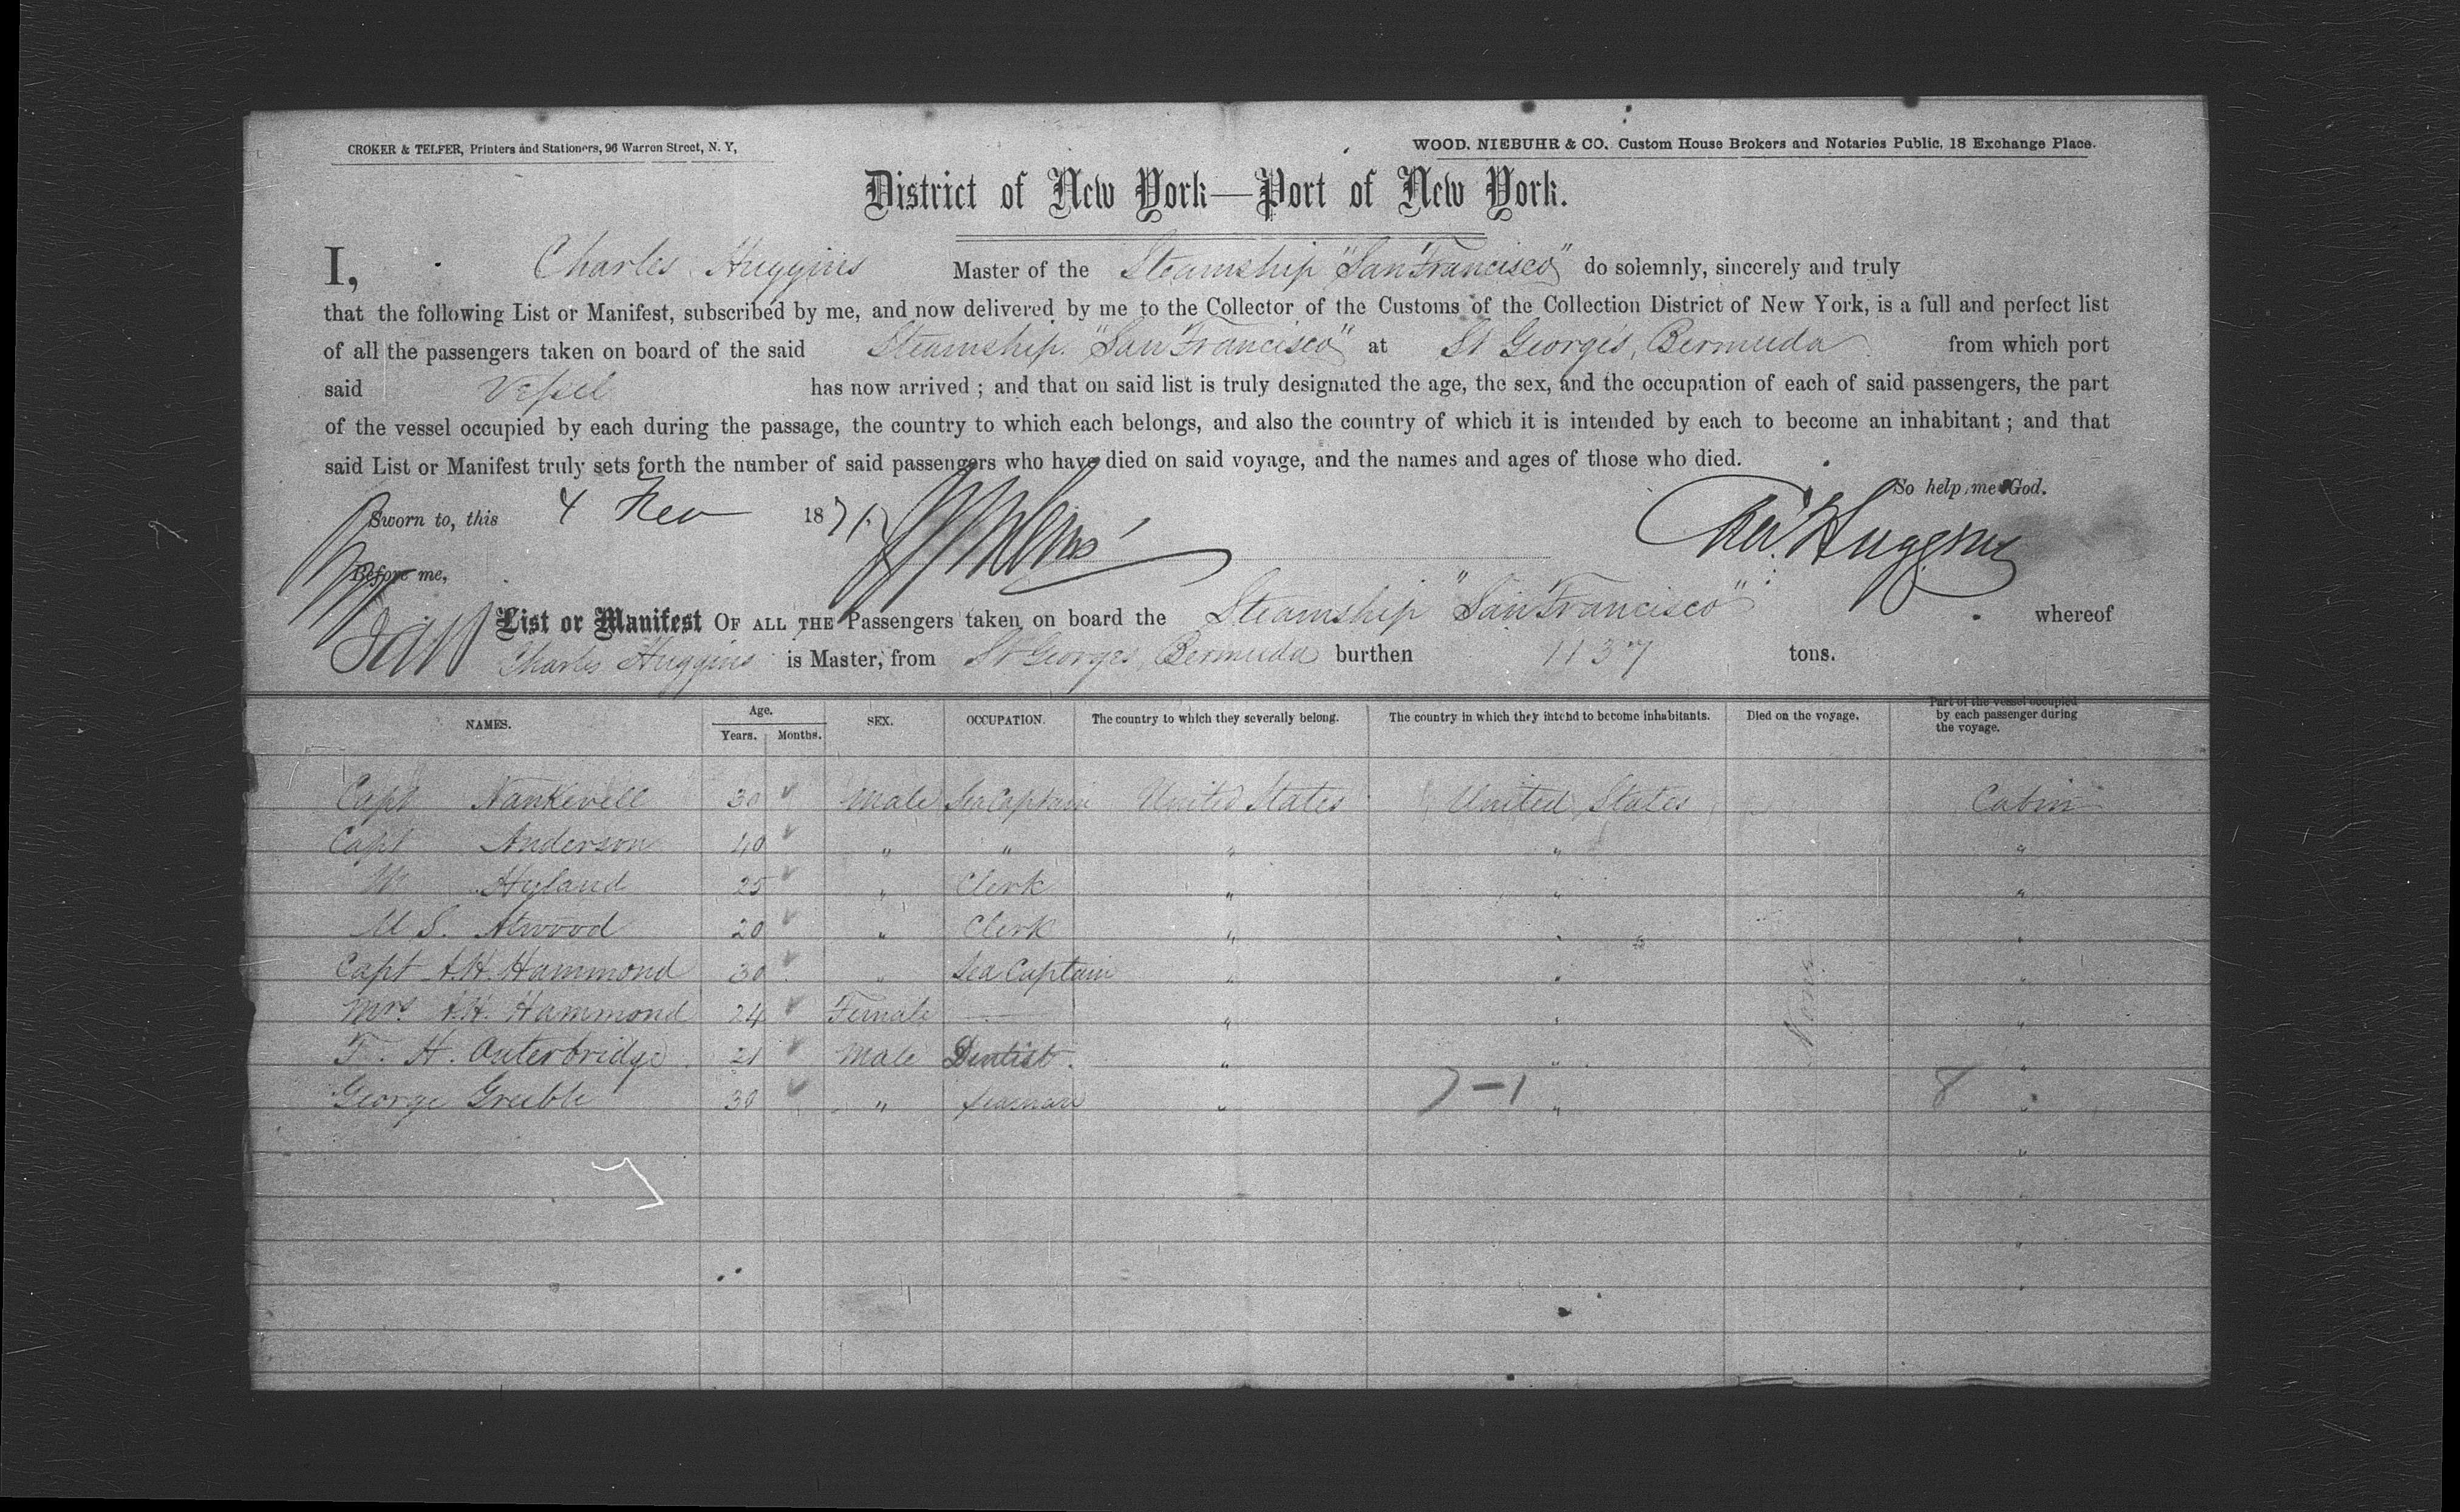 CROKER & TELFER, Printers and Stationers, 96 Warren Street, N. Y,
WOOD, NIEBUHR & CO. Custom House Brokers and Notaries Public, 18 Exchange Place.
District of New York—Port of New York.
I, Charles Huggins Master of the Steamship "San Francisco" do solemnly, sincerely and truly
that the following List or Manifest, subscribed by me, and now delivered by me to the Collector of the Customs of the Collection District of New York, is a full and perfect list
of all the passengers taken on board of the said Steamship "San Francisco" at St Georges, Bermuda from which port
said Vessel has now arrived ; and that on said list is truly designated the age, the sex, and the occupation of each of said passengers, the part
of the vessel occupied by each during the passage, the country to which each belongs, and also the country of which it is intended by each to become an inhabitant ; and that
said List or Manifest truly sets forth the number of said passengers who have died on said voyage, and the names and ages of those who died.
So help me God.
Sworn to, this 4 1871 Chas. Huggins
Before me,
List or Manifest OF ALL THE Passengers taken on board the Steamship "San Francisco" whereof
Charles Huggins is Master, from St Georges Bermuda burthen 1137 tons.
NAMES. Age. Years. Months. SEX. OCCUPATION. The country to which they severally belong. The country in which they intend to become inhabitants. Died on the voyage. Part of the vessel occupied by each passenger during the voyage.
Capt Nankivell 30 Male Sea Captain United States United States Cabin
Capt Anderson 40 " " " " "
Hyland 25 " Clerk " " "
Atwood 20 " Clerk " " "
Capt A.H. Hammond 30 " Sea Captain " " "
Mrs. A.H. Hammond 24 Female — " " "
F. H. Outerbridge 21 Male Dentist. " " "
George Greible 30 " Seaman " " "
None
7-1 8